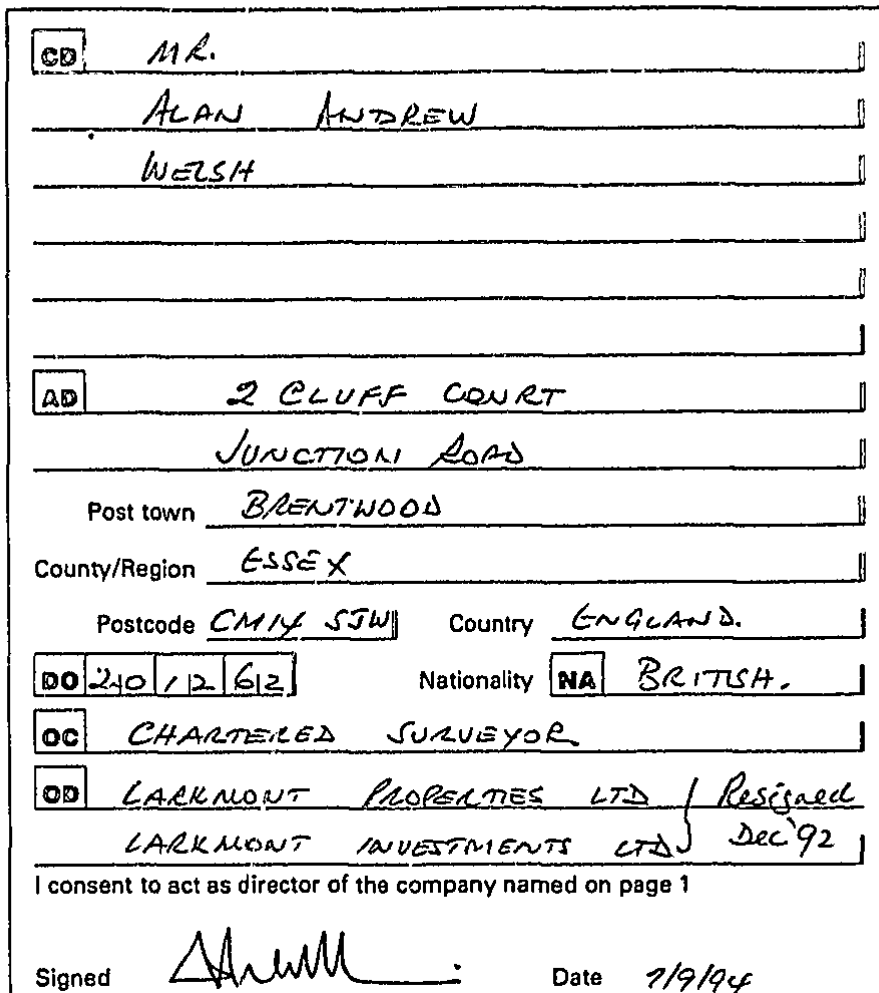 CD MR.
ALAN ANDREW
WELSH
AD 2 CLUFF COURT
JUNCTION ROAD
Post town BRENTWOOD
County/Region ESSEX
Postcode CM14 5JW Country ENGLAND.
DO 20 12 62 Nationality NA BRITISH.
OC CHARTERED SURVEYOR
OD LARKMONT PROPERTIES LTD Resigned
LARKMONT INVESTMENTS LTD Dec '92
I consent to act as director of the company named on page 1
Signed Date 7/9/94